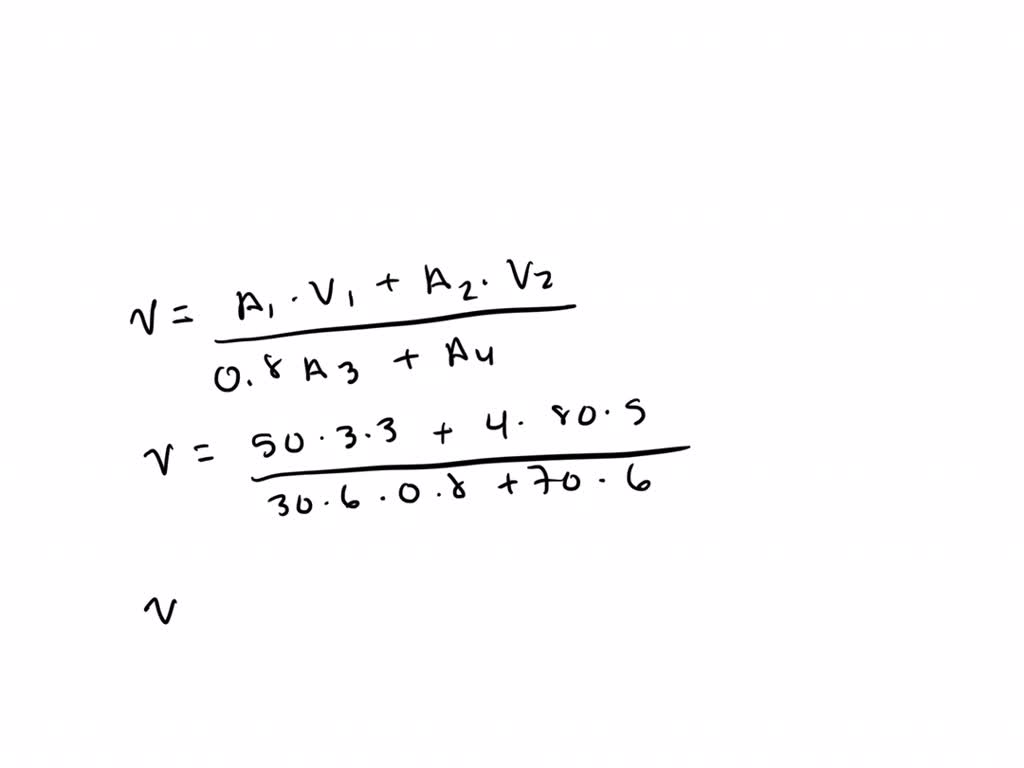 V = A₁ · V₁ + A₂ · V₂
0.8 A₃ + A₄
V = 50 · 3 · 3 + 4 · 80 · 5
30 · 6 · 0.8 + 70 · 6
V